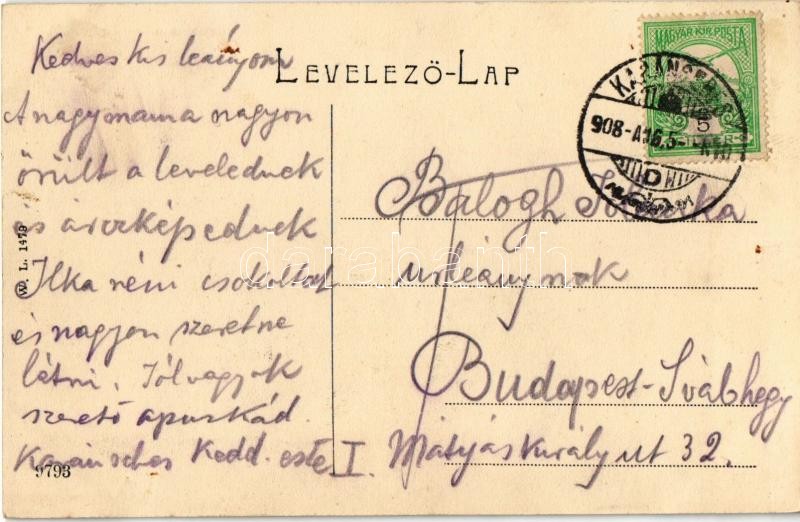 LEVELEZŐ-LAP
MAGYAR KIR. POSTA
5
908
D
Kedves kis leányom
A nagymama nagyon
örült a levelednek
és arczképednek
Ilka néni csókoltat
és nagyon szeretne
látni. Jól vagyok
szerető apuskád
Karánsebes Kedd. este
W. L. 1479
9793
Balogh
urleánynak
Budapest-Svábhegy
I. Mátyás király ut 32.
darabanth